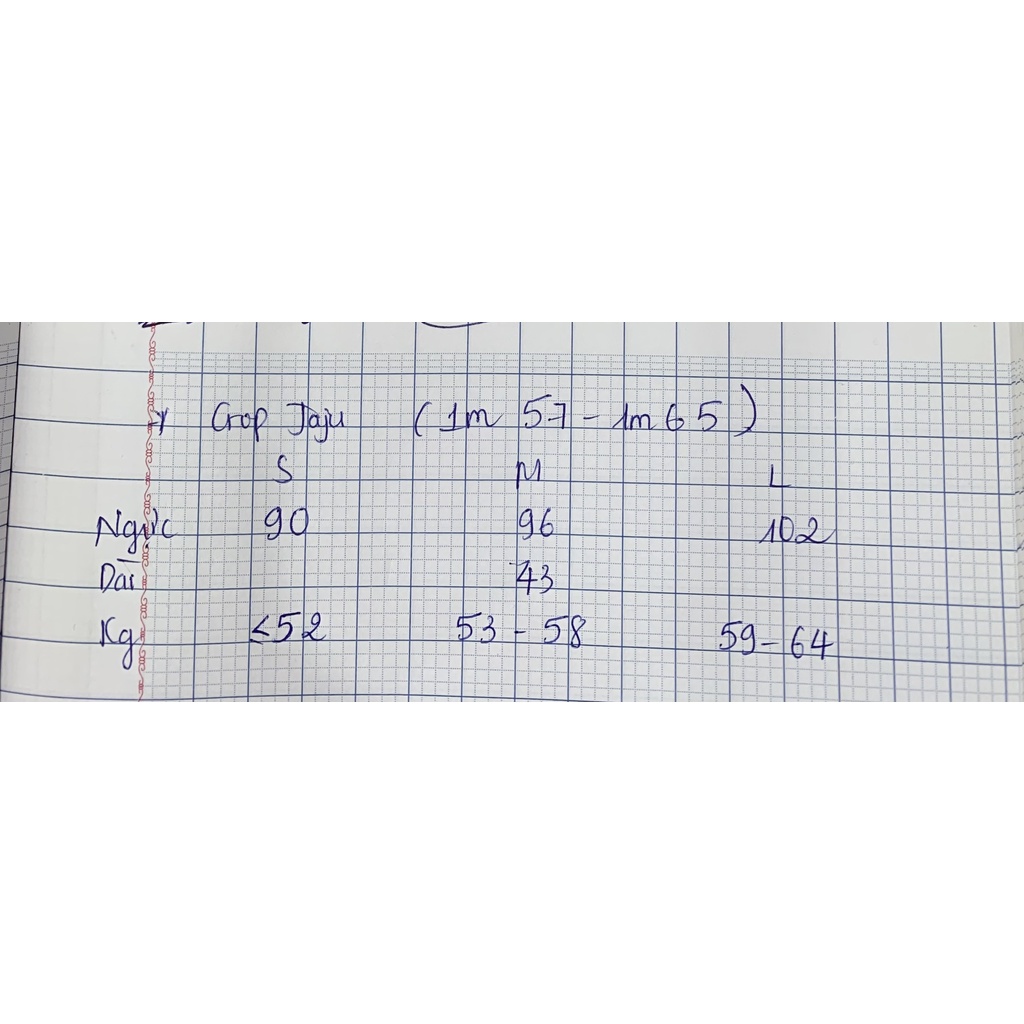 + Crop Jaju (1m 57 - 1m 65)
S M L
Ngực 90 96 102
Dài 43
Kg ≤52 53 - 58 59 - 64